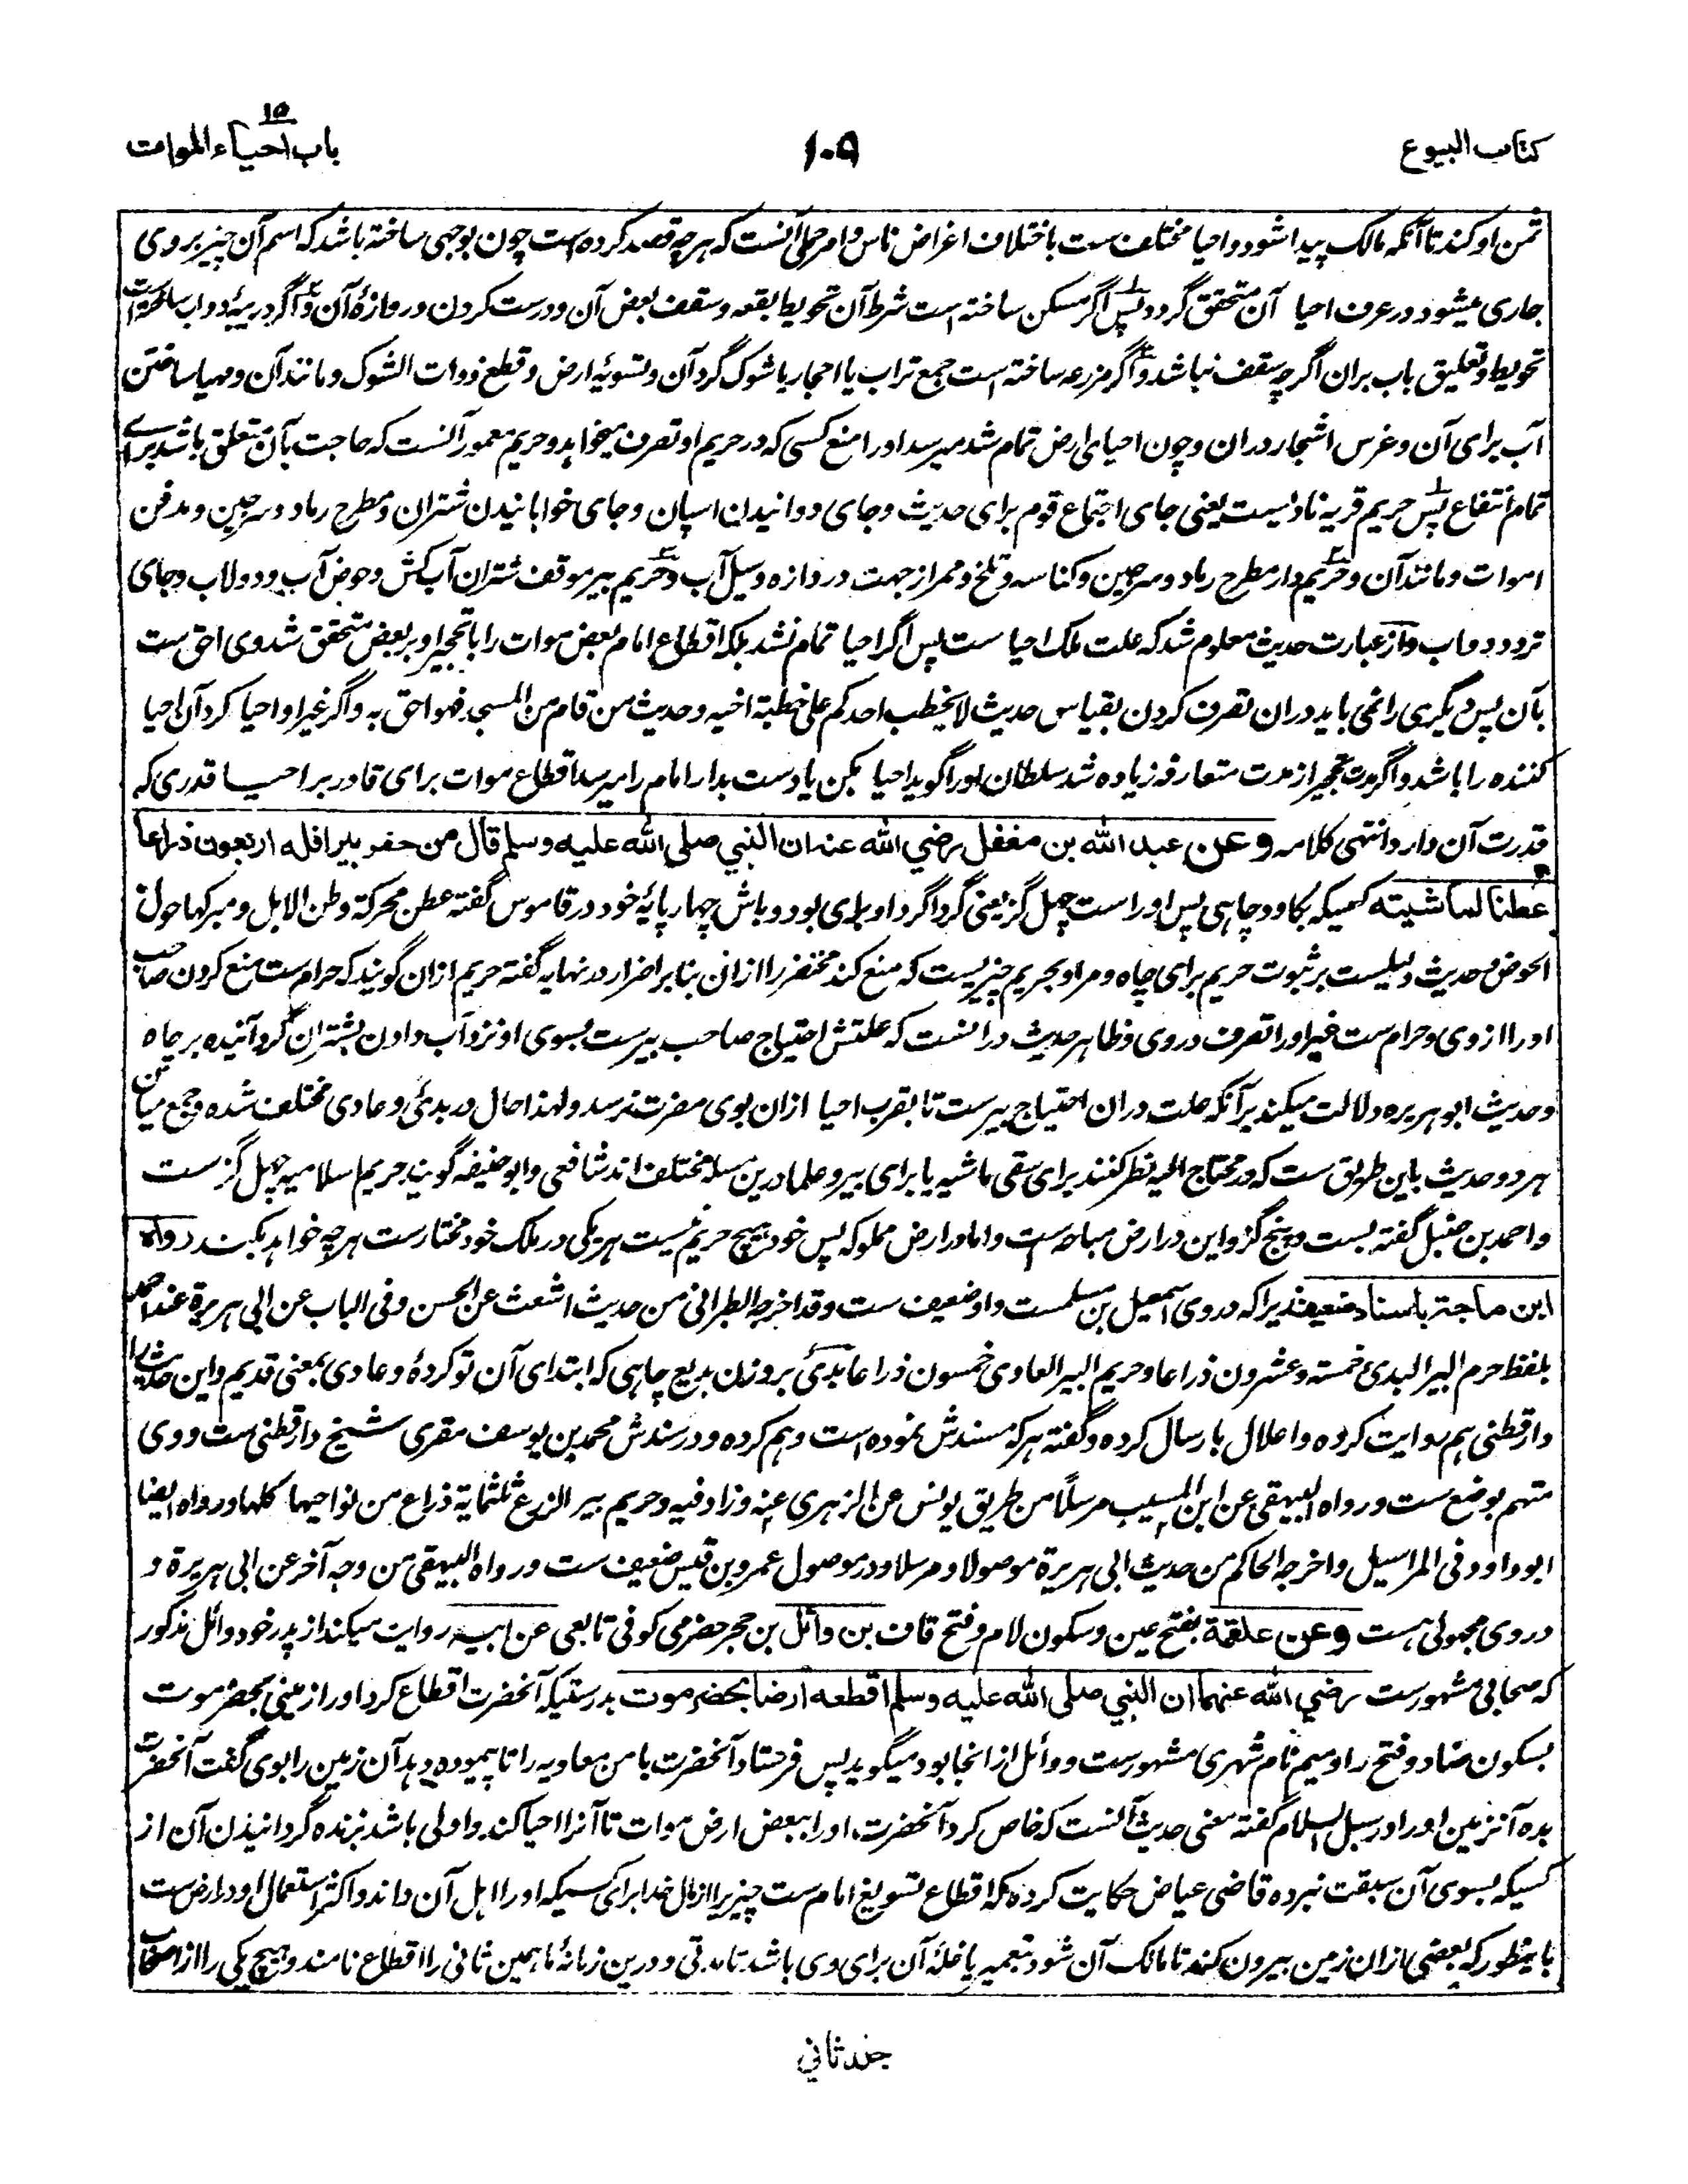 کتاب البیوع
۱۰۹
۱۵
باب احیاء الموات
ثمن او کند تا آنکه مالک پیدا شود و احیا مختلف ست باختلاف اغراض ناس و امر جملی آنست که هر چه قصد کرده است چون بوجهی ساخته باشد که اسم آن چیز بر وی
جاری میشود در عرف احیا آن متحقق گردد پس اگر مسکن ساخته است شرط آن تحویط بقعه و سقف بعض آن و درست کردن دروازهٔ آن و اگر زریبهٔ دواب ساخته است
تحویط و تعلیق باب بران اگر چه سقف نباشد و اگر مزرعه ساخته است جمع تراب یا احجار یا شوک گرد آن و تسویهٔ ارض و قطع ذوات الشوک و مانند آن و مهیا ساختن
آب برای آن و غرس اشجار دران و چون احیای ارض تمام شد میرسد او را منع کسی که در حریم او تصرف میخواهد و حریم معمور آنست که حاجت بآن متعلق باشد برای
تمام انتفاع پس حریم قریه نادیست یعنی جای اجتماع قوم برای حدیث و جای دوانیدن اسپان و جای خوابانیدن شتران و مطرح رماد و سرجین و مدفن
اموات و مانند آن و حریم دار مطرح رماد و سرجین و کناسه و ثلج و ممر از جهت دروازه و سیل آب و حریم بیر موقف شتران آب کش و حوض آب و دولاب و جای
تردد دواب و از عبارت حدیث معلوم شد که علت ملک احیا ست پس اگر احیا تمام نشد بلکه اقطاع امام بعض موات را یا تحجیر او بر بعض متحقق شد وی احق ست
بآن پس دیگری را نمی باید دران تصرف کردن بقیاس حدیث لا یخطب احدکم علی خطبة اخیه و حدیث من قام من المسجد فهو احق به و اگر غیر او احیا کرد آن احیا
کننده را باشد و اگر مدت تحجیر از مدت متعارفه زیاده شد سلطان او را گوید احیا بکن یا دست بدار امام را میرسد اقطاع موات برای قادر بر احیا قدری که
قدرت آن دارد انتهی کلامه وعن عبد الله بن مغفل رضي الله عنه ان النبي صلى الله عليه وسلم قال من حفر بيرا فله اربعون ذراعا
عطنا لماشيته کسیکه بکاود چاهی پس او راست چهل گز یعنی گرداگرد او برای بود و باش چهار پایهٔ خود در قاموس گفته عطن محرکة وطن الابل و مبرکها حول
الحوض و حدیث دلیلست بر ثبوت حریم برای چاه و مراد بحریم چیزیست که منع کند محتضر را ازان بنا بر اضرار در نهایه گفته حریم ازان گویند که حرام ست منع کردن صاحب
او را از وی و حرام ست غیر او را تصرف در وی و ظاهر حدیث در آنست که علتش احتیاج صاحب بیر ست بسوی او نزد آب دادن بشتران گرد آینده بر چاه
و حدیث ابو هریره دلالت میکند بر آنکه علت دران احتیاج بیر ست تا بقرب احیا ازان بوی مضرت نرسد و لهذا حال در بدئ و عادی مختلف شده و جمع میان
هر دو حدیث باین طریق ست که در محتاج الیه نظر کنند برای سقی ماشیه یا برای بیر و علما درین مسله مختلف اند شافعی و ابو حنیفه گویند حریم اسلامیه چهل گز ست
و احمد بن حنبل گفته بست و پنج گز و این در ارض مباحه است و اما در ارض مملوکه پس خود هیچ حریم نیست هر یکی در ملک خود مختار ست هر چه خواهد بکند رواه
ابن ماجة باسناد ضعیف زیرا که در وی اسمعیل بن مسلم ست و او ضعیف ست و قد اخرجه الطبرانی من حدیث اشعث عن الحسن و فی الباب عن ابی هریرة عند احمد
بلفظ حرم البیر البدئ خمسة و عشرون ذراعا و حریم البیر العادی خمسون ذراعا بدئ بر وزن بدیع چاهی که ابتدای آن تو کردهٔ و عادی بمعنی قدیم و این حدیث را
دارقطنی هم روایت کرده و اعلال بارسال کرده و گفته هر که مسندش نموده است وهم کرده و در سندش محمد بن یوسف مقری شیخ دارقطنی ست و وی
متهم بوضع ست و رواه البیهقی عن ابن المسیب مرسلًا من طریق یونس عن الزهری عنه و زاد فیه و حریم بیر الزرع ثلثمایة ذراع من نواحیها کلها و رواه ایضا
ابو داود فی المراسیل و اخرجه الحاکم من حدیث ابی هریرة موصولا و مرسلا و در موصول عمرو بن قیس ضعیف ست و رواه البیهقی من وجه آخر عن ابی هریرة و
در وی مجهولی هست وعن علقمة بفتح عین و سکون لام و فتح قاف بن وائل بن حجر حضرمی کوفی تابعی عن ابيه روایت میکند از پدر خود وائل مذکور
که صحابی مشهور ست رضي الله عنهما ان النبي صلى الله عليه وسلم اقطعه ارضا بحضرموت بدرستیکه آنحضرت اقطاع کرد او را زمینی بحضرموت
بسکون ضاد و فتح را و میم نام شهری مشهور ست و وائل از انجا بود میگوید پس فرستاد آنحضرت با من معاویه را تا پیموده دهد آن زمین را بوی گفت آنحضرت
بده آنزمین او را در سبل السلام گفته معنی حدیث آنست که خاص کرد آنحضرت او را ببعض ارض موات تا آنرا احیا کند و اولی باشد بزنده گردانیدن آن از
کسیکه بسوی آن سبقت نبرده قاضی عیاض حکایت کرده که اقطاع تسویغ امام ست چیزیرا از مال خدا برای کسیکه او را اهل آن داند و اکثر استعمال او در ارض ست
باینطور که بعضی ازان زمین بیرون کند تا مالک آن شود بتعمیر یا غلهٔ آن برای وی باشد تا مدتی و درین زمانهٔ ما همین ثانی را اقطاع نامند و هیچ یکی را از اصحاب
جلد ثاني